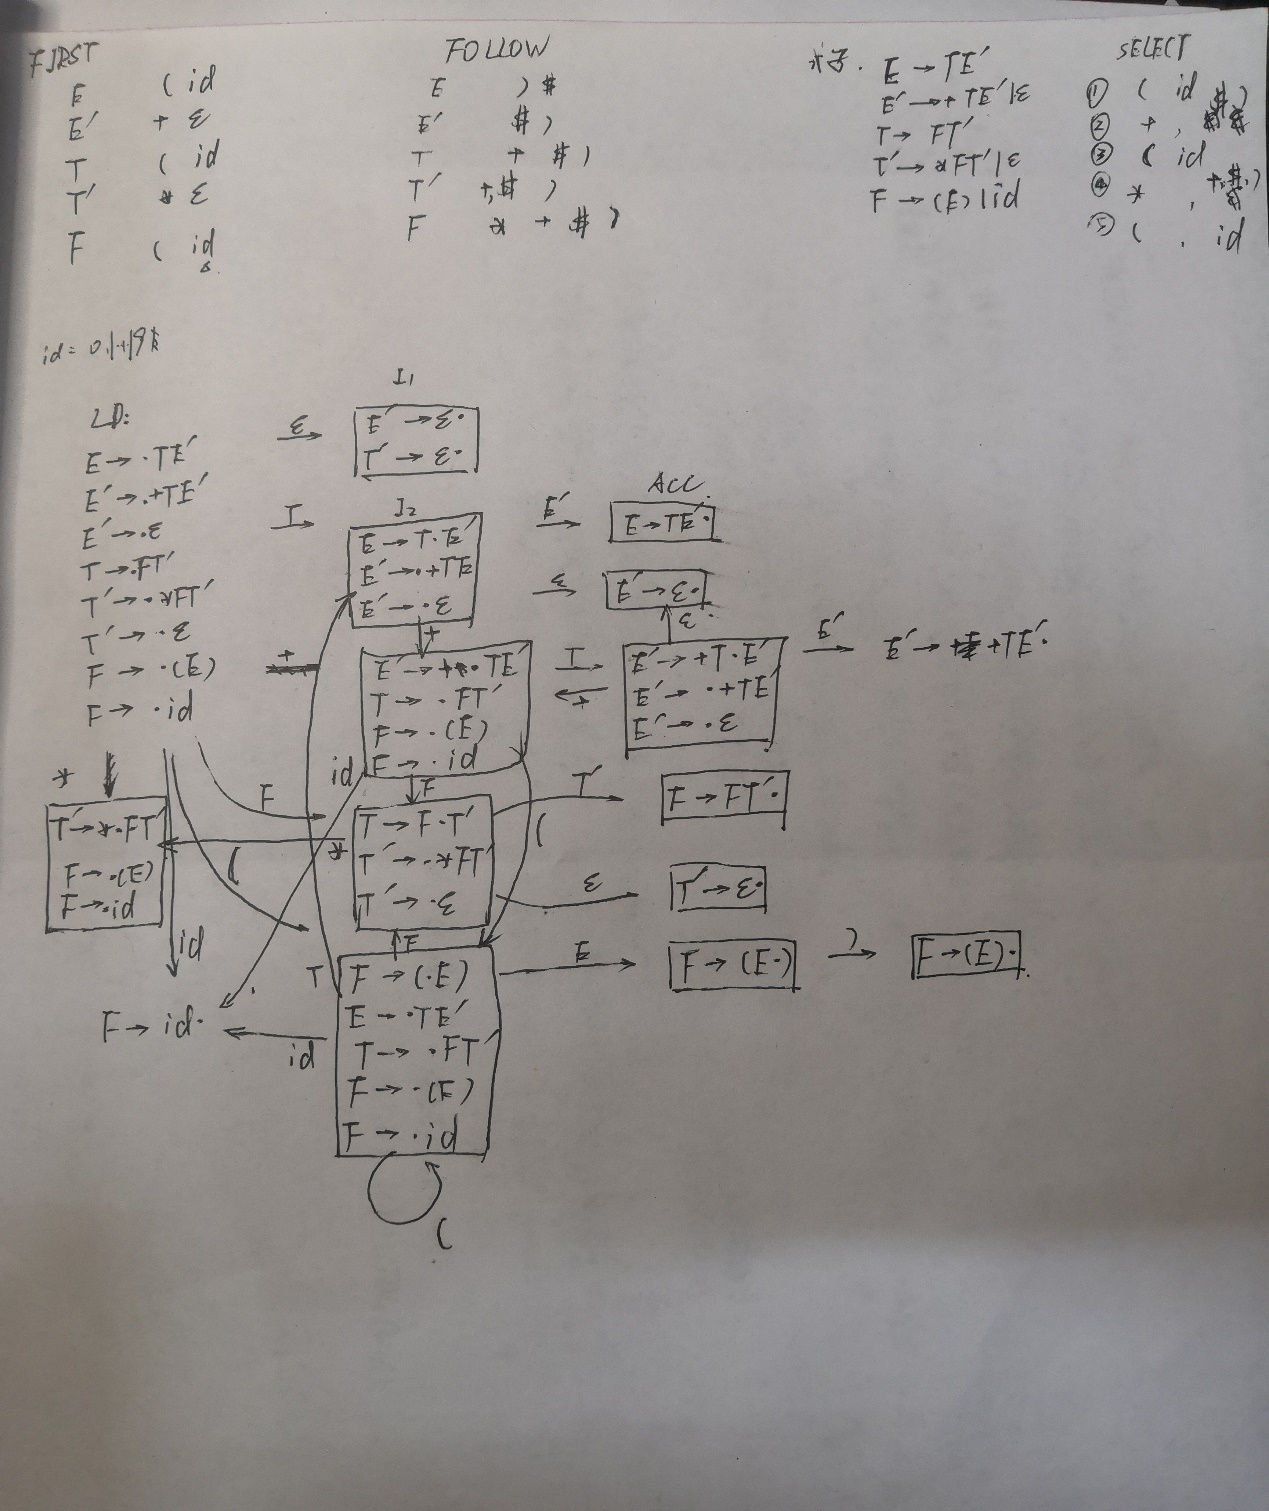 FIRST
E ( id
E' + ε
T ( id
T' * ε
F ( id
FOLLOW
E ) #
E' # )
T + # )
T' +,# )
F * + # )
E → TE'
E' → +TE'|ε
T → FT'
T' → *FT'|ε
F → (E)|id
SELECT
① ( id
② + , # )
③ ( id
④ * , +,#,)
⑤ ( , id
id=
E → ·TE'
E' → ·+TE'
E' → ·ε
T → ·FT'
T' → ·*FT'
T' → ·ε
F → ·(E)
F → ·id
ε
I1
E' → ε·
T' → ε·
T
I2
E → T·E'
E' → ·+TE
E' → ·ε
E'
ACC
E → TE'·
ε
E' → ε·
ε
+
+
E' → +·TE'
T → ·FT'
F → ·(E)
F → ·id
T
+
E' → +T·E'
E' → ·+TE'
E' → ·ε
E'
E' → +TE'·
id
F
*
T' → *·FT'
F → ·(E)
F → ·id
F
(
*
T → F·T'
T' → ·*FT'
T' → ·ε
T'
F → FT'·
(
ε
T' → ε·
id
F
T
F → (·E)
E → ·TE'
T → ·FT'
F → ·(E)
F → ·id
E
F → (E·)
)
F → (E)·
F → id·
id
(